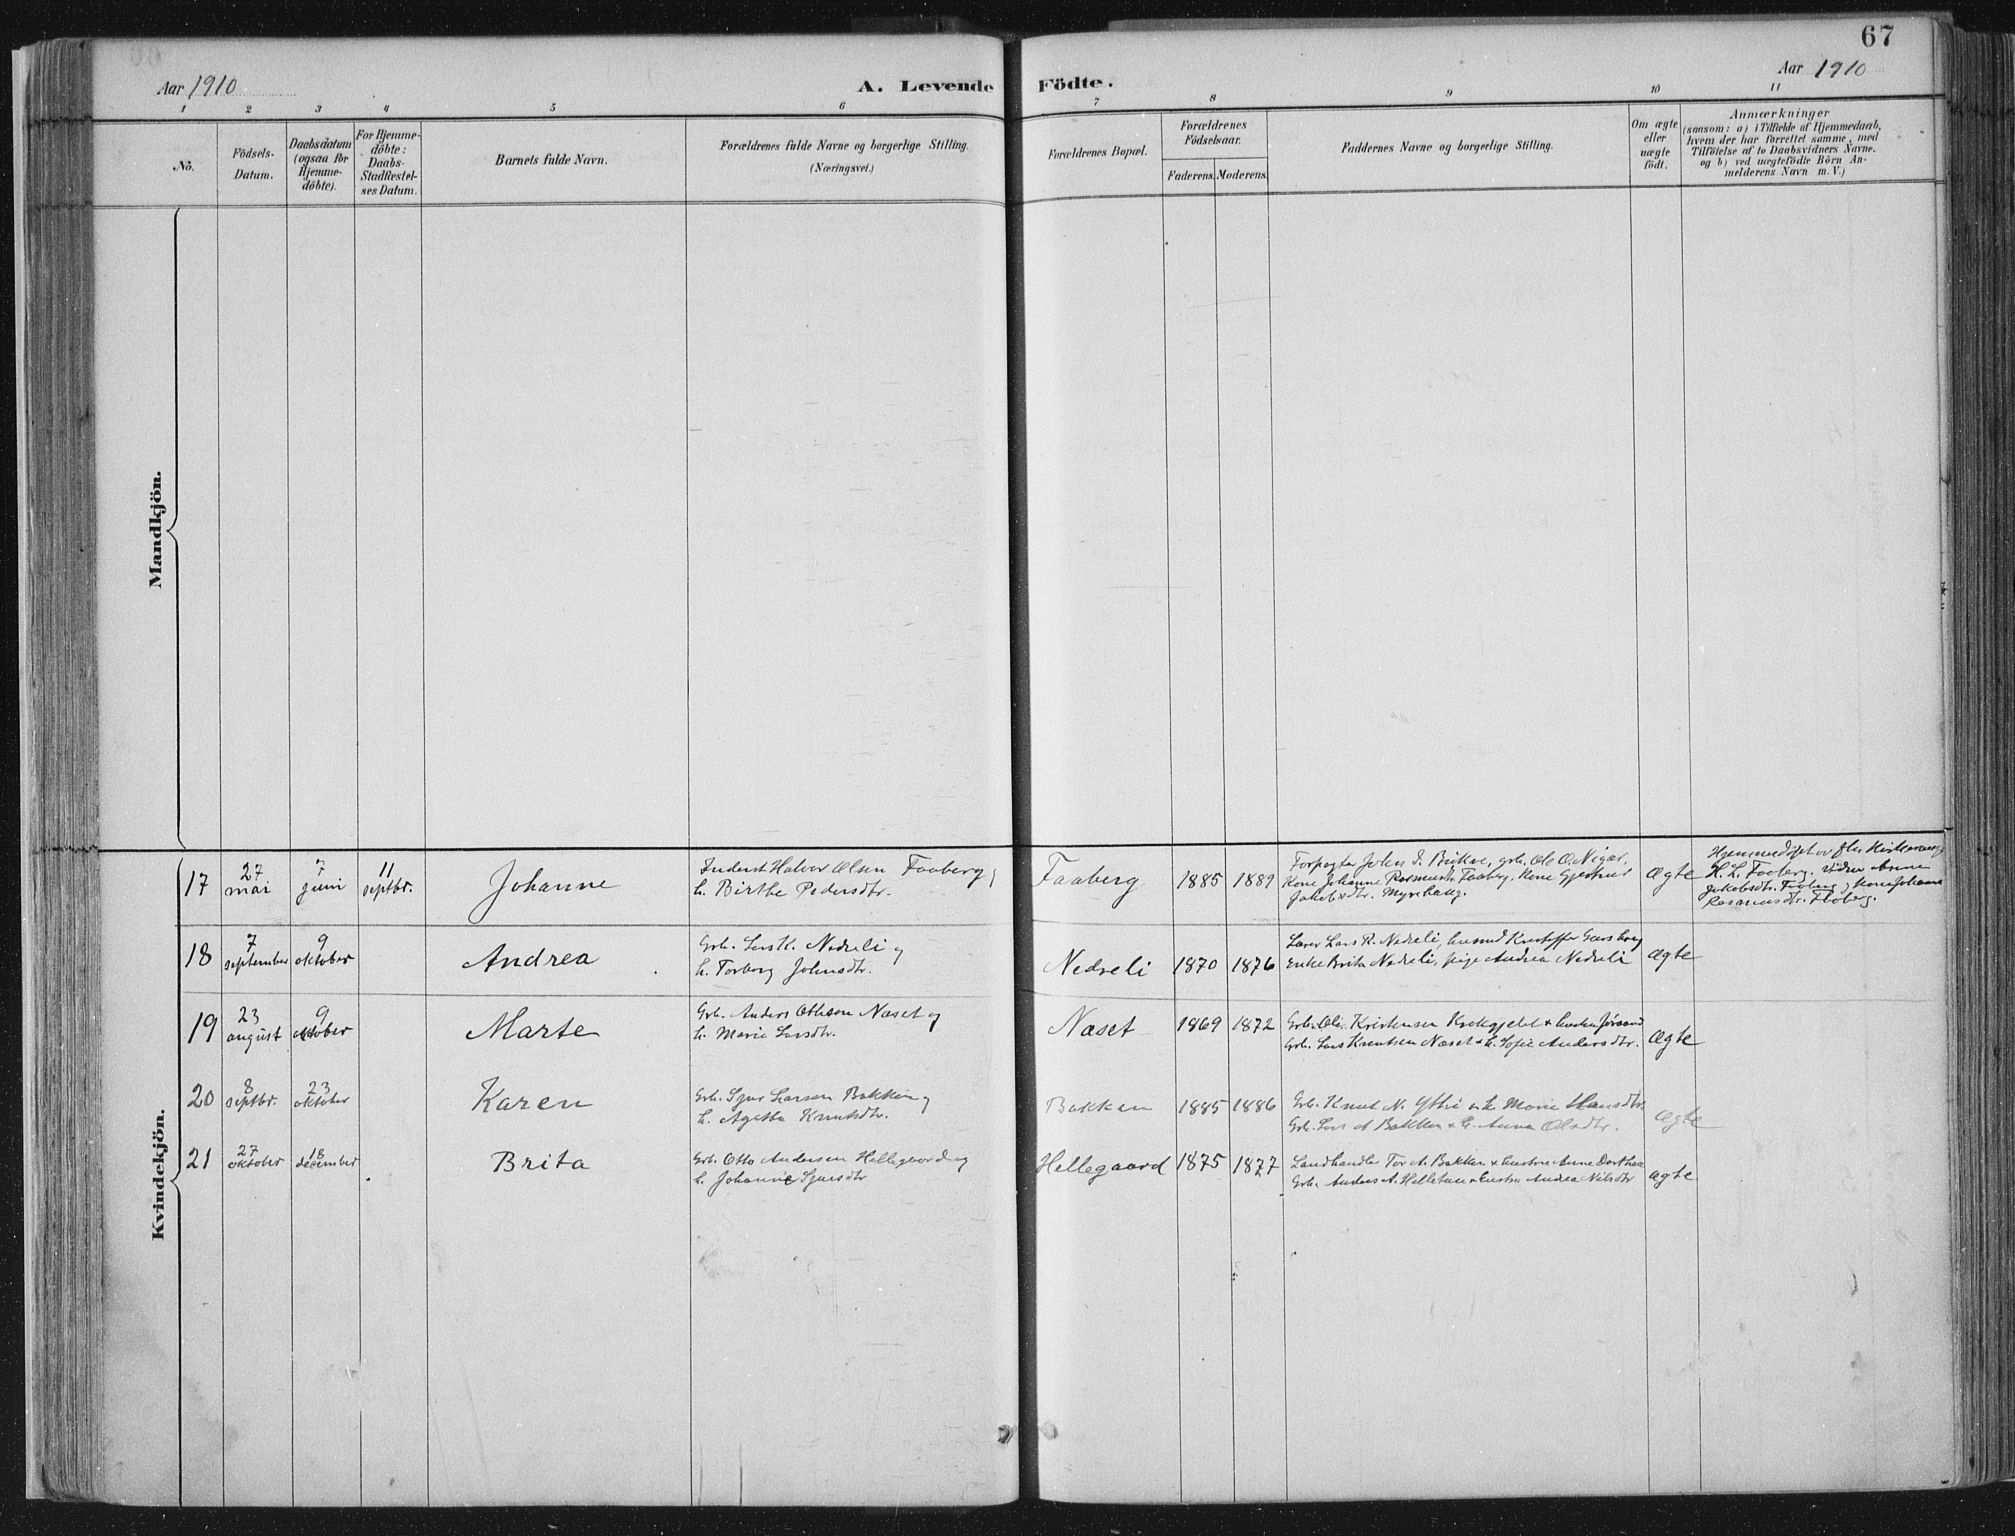 67
Aar 1910
A. Levende Födte.
Aar 1910
1 2 3 4 5 6 7 8 9 10 11
No.
Födsels-
Datum.
Daabsdatum
(ogsaa for
Hjemme-
döbte).
For Hjemme-
döbte:
Daabs-
Stadfæstel-
ses Datum.
Barnets fulde Navn.
Forældrenes fulde Navne og borgerlige Stilling.
(Næringsvei.)
Forældrenes Bopæl.
Forældrenes
Födselsaar.
Faderens. Moderens.
Faddernes Navne og borgerlige Stilling.
Om ægte
eller
uægte
födt.
Anmærkninger
(saasom: a) i Tilfælde af Hjemmedaab,
hvem der har forrettet samme, med
Tilföielse af to Daabsvidners Navne,
og b) ved uægtefödte Börn An-
melderens Navn m. V.)
Mandkjön.
Kvindekjön.
17
27
mai
7
juni
11
septbr.
Johanne
Inderst Halvor Olsen Faaberg,
h. Birthe Pedersdtr.
Faaberg
1885 1889
Forpagter John J. Brikse, grb. Ole O. Nigar,
Kone Johanne Rasmusdtr. Faaberg, Kone Gjertrud
Jakobsdtr. Myrhaug.
ægte
Hjemmedøpt av
H. L. Faaberg. Vidner Anna
Jakobsdtr. Faaberg og Kone Johanne
Rasmusdtr. Faaberg.
18
7
september
9
oktober
Andrea
Grb. Lars K. Nedreli og
h. Torborg Johnsdtr.
Nedreli
1870 1876
Lærer Lars R. Nedreli, Kristoffer
Enke Brita Nedreli, pige Andrea Nedreli
ægte
19
23
august
9
oktober
Marte
Grb. Anders Otteson Næset og
h. Marie Larsdtr.
Næset
1869 1872
Grb. Ole Kristensen Krokgjelet + hustru Jørand
Grb. Lars Knutsen Næset + h. Sofie Andersdtr.
ægte
20
8
septbr.
23
oktober
Karen
Grb. Sjur Larsen Bakken og
h. Agatha Knutsdtr.
Bakken
1885 1886
Grb. Knut N. Yttri + h. Marie Hansdtr.
Grb. Lars A Bakken + h. Anna Olsdtr.
ægte
21
27
oktober
18
december
Brita
Grb. Otto Andersen Hellegaard og
h. Johanne Sjursdtr
Hellegaard
1875 1877
Landhandler Tor A. Bakken + hustru Anne Dorthea
Grb. Anders A. Helletun + hustru Andrea Nilsdtr
ægte